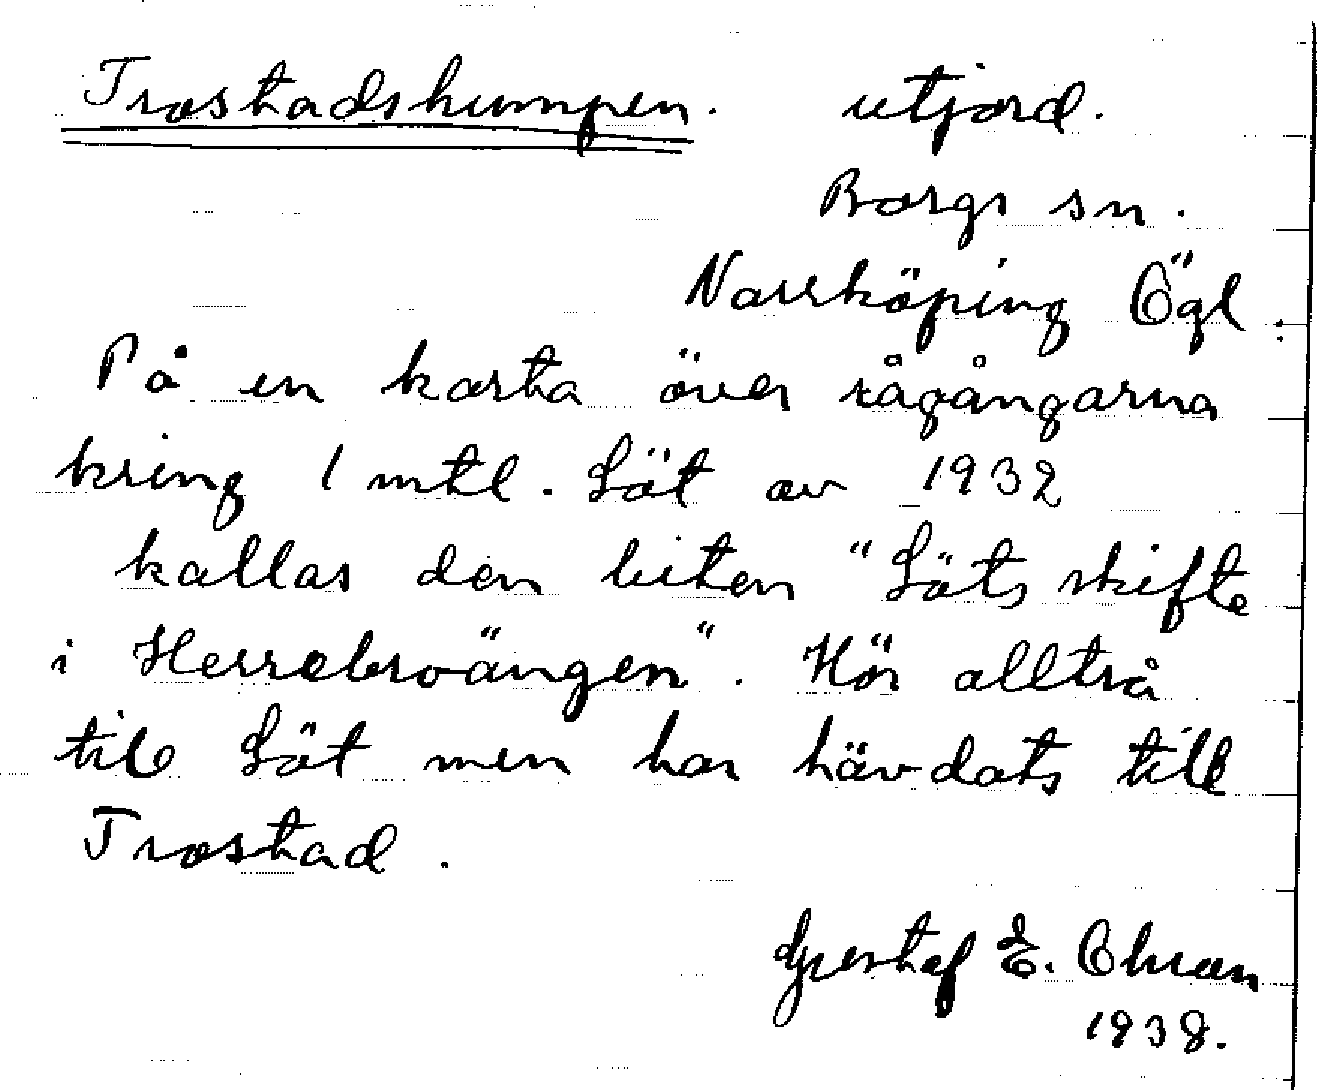 Trostadshumpen. utjord.
Borgs sn.
Norrköping Ögl.
På en karta över rågångarna
kring 1 mtl. Löt av 1932
kallas den biten "Löts skifte
i Herrebroängen". Hör alltså
till Löt men har hävdats till
Trostad.
Gustaf E.
1938.